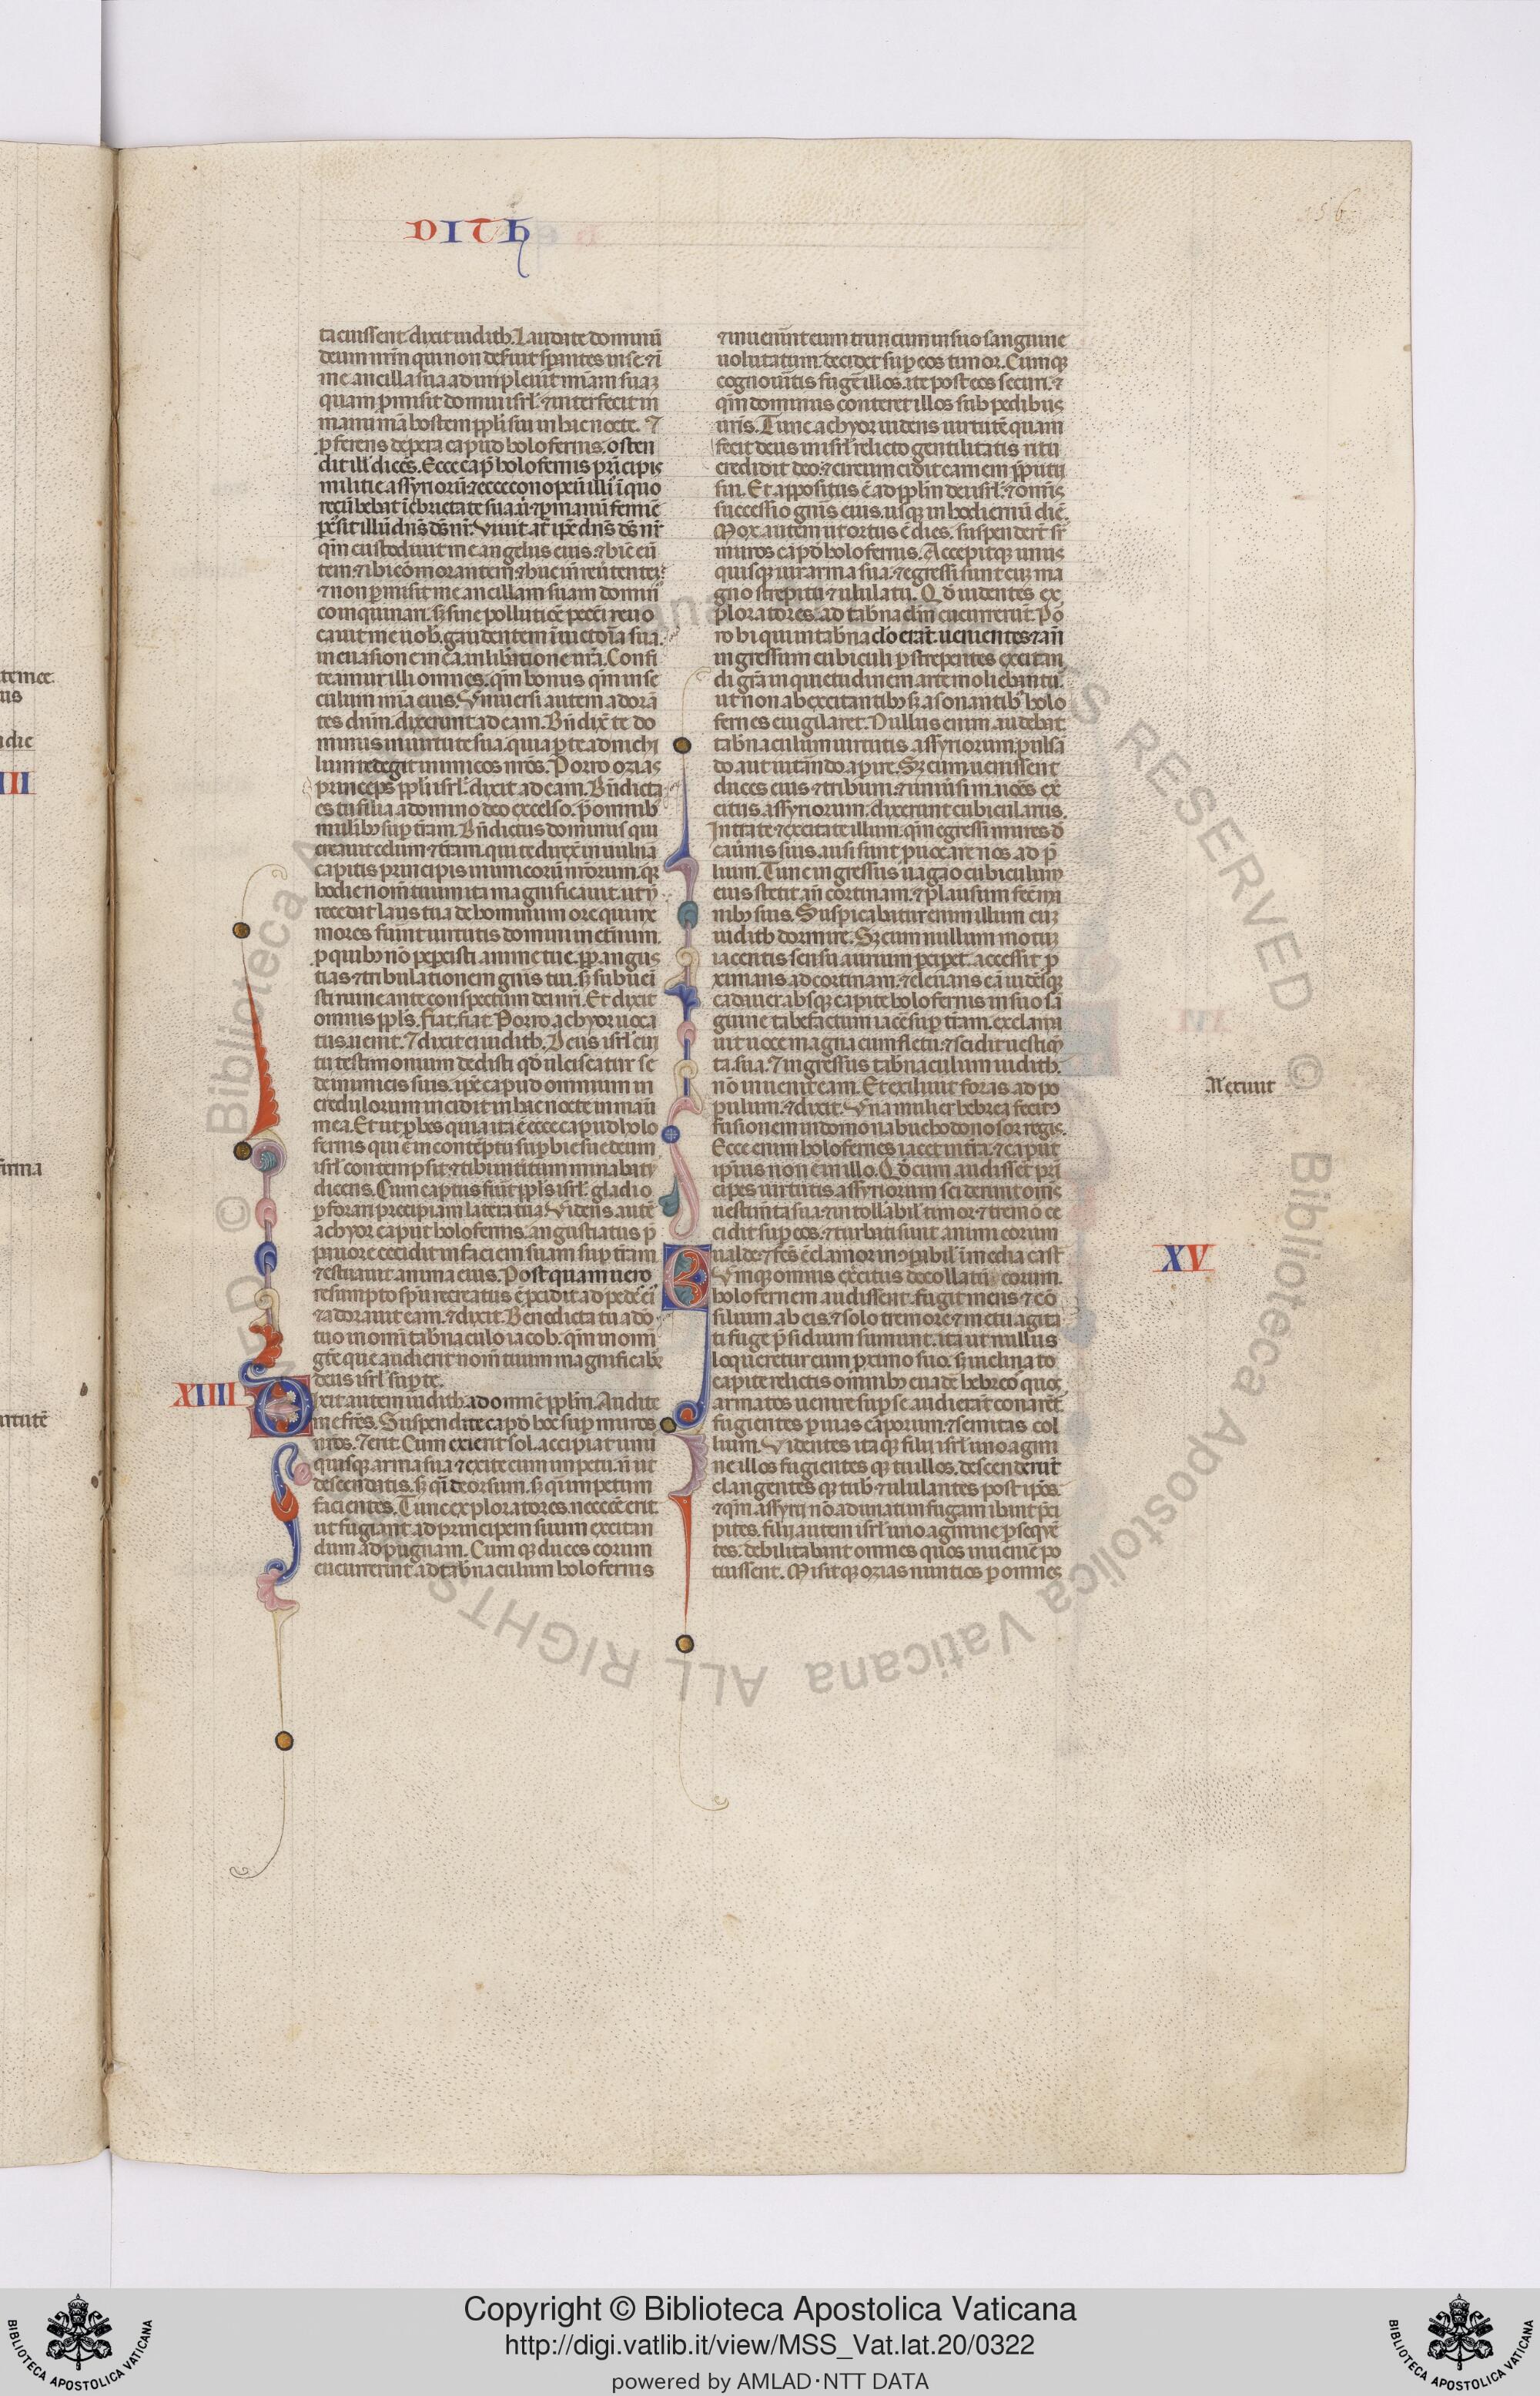 DITh
156
tacuissent dixit iudith. Laudate dominū
deum nr̄m qui non deseruit sperantes in se. ⁊ ī
me ancilla sua adimpleuit mīam suaȝ
quam promisit domui isrl̄. ⁊ interfecit in
manu mea hostem ppl̄i sui in hac nocte. ⁊
proferens de pera capud holofernis. osten
dit ill̄ dicēs. Ecce cap̄ holofernis prīcipis
militie assyrioruȝ. ⁊ ecce conopeū illi ī quo
recūbebat ī ebrietate sua. ū ⁊ per manū femīe
percussit illū dn̄s ds̄ nr̄. Viuit at̄ ipē dn̄s ds̄ nr̄
qm̄ custodiuit me angelus eius. ⁊ hīc eū
tem. ⁊ ibi cōmorantem. ⁊ huc īn reūtenteȝ.
⁊ non permisit me ancillam suam domin̄
coinquinari. sȝ sine pollutiōe peccati reuo
cauit me uob̄. gaudentem ī uictoīa sua.
in euasione mea. in libātione nrā. Confi
teamur illi omnes. qm̄ bonus qm̄ in se
culum mīa eius. Vniuersi autem adorā
tes dnm̄. dixerunt ad eam. Bn̄dix̄ te do
minus in uirtute sua. quia per te ad nichi
lum redegit inimicos nr̄os. Porro ozias
princeps ppl̄i isrl̄. dixit ad eam. Bn̄dicta
es tu filia a domino deo excelso. p̄ omnib̄
mulib̄ȝ sup̄ tr̄am. Bn̄dictus dominus qui
creauit celum ⁊ tr̄am. qui te direx̄ in uulna
capitis principis inimicorū nr̄orum. quia
hodie nom̄ tuum ita magnificauit. ut n̄
recedat laus tua de hominum ore qui me
mores fuīnt uirtutis domini in etn̄um.
pro quibȝ nō pepcisti anime tue. pp̄ angus
tias ⁊ tribulationem gn̄is tui. sȝ subueni
sti ruine ante conspectum dei nr̄i. Et dixit
omnis ppl̄s. fiat. fiat. Porro achyor uoca
tus. uenit. ⁊ dixit ei iudith. Deus isrl̄ cui
tu testimonium dedisti qd̄ ulciscatur se
de inimicis suis. ipē capud omnium in
credulorum incidit in hac nocte in manu
mea. Et ut probes quia ita ē ecce capud holo
fernis qui ē in contēptu supbie sue deum
isrl̄ contempsit. ⁊ tibi interitum minabat̄
dicens. Cum captus fuīt ppl̄s isrl̄. gladio
pforari precipiam latera tua. Videns autē
achyor caput holofernis. angustiatus p̄
pauore cecidit in faciem suam sup̄ tr̄am
⁊ estuauit anima eius. Postquam uero
resumpto sp̄u recreatus ē. pcidit ad pedē ei
⁊ adorauit eam. ⁊ dixit. Benedicta tu a dō
tuo in omni tab̄naculo iacob. qm̄ in omni
gēte que audierit nom̄ tuum magnificab̄
deus isrl̄ sup̄ te.
XIIII
Dixit autem iudith. ad omnē ppl̄m. Audite
me fr̄es. Suspendite capd̄ hoc sup̄ muros
nr̄os. ⁊ erit. Cum exierit sol. accipiat unu
quisqȝ arma sua ⁊ exite cum impetu. n̄ ut
descendatis. sȝ qī deorsum. sȝ qī impetum
facientes. Tunc exploratores. necceē erit.
ut fugiant ad principem suum excitan
dum ad pugnam. Cumqȝ duces eorum
cucurrerint ad tab̄naculum holofernis
⁊ inuenīnt eum truncum in suo sanguine
uolutatum. decidet sup̄ eos timor. Cumqȝ
cognoūitis fugē illos. ite post eos securi. ⁊
qm̄ dominus conteret illos sub pedibus
uris. Tunc achyor uidens uirtutē quam
fecit deus in isrl̄ relicto gentilitatis ritu
credidit deo. ⁊ circumcidit carnem pputii
sui. Et appositus ē ad ppl̄m dei isrl̄. ⁊ omīs
successio gn̄is eius. usqȝ in hodiernū diē.
Mox autem ut ortus ē dies. suspenderūt sr̄
muros capd̄ holofernis. Accepitqȝ unus
quisqȝ uir arma sua. ⁊ egressi sunt cuȝ ma
gno strepitu ⁊ ululatu. Qd̄ uidentes ex
ploratores. ad tab̄na clm̄ cucurrerūt. Por
ro hi qui in tab̄naclo erat̄. uenientes. ⁊ an̄
ingressum cubiculi pstrepentes excitan
di grā inquietudinem arte moliebantur.
ut non ab excitantibȝ sȝ a sonantib̄ holo
fernes euigilaret. Nullus enim. audebat
tab̄naculum uirtutis assyriorum. pulsā
do. aut intrando aprire. Sȝ cum uenissent
duces eius ⁊ tribuni. ⁊ uniūsi maiores exer
citus assyriorum. dixerunt cubiculariis.
Intrate ⁊ excitate illum. qm̄ egressi mures d̄
cau̅nis suis. ausi sunt puocare nos ad p̄
lium. Tunc ingressus uagao cubiculum
eius stetit an̄ cortinam. ⁊ plausum fecit ma
nibȝ suis. Suspicabatur enim illum cuȝ
iudith dormire. Sȝ cum nullum motuȝ
iacentis sensu aurium pcipet. accessit p
ximans ad cortinam. ⁊ eleuans eā uidēsqȝ
cadauer absqȝ capite holofernis in suo sā
guine tabefactum iacē sup̄ tr̄am. exclama
uit uoce magna cum fletu. ⁊ scidit uestim̄
ta sua. ⁊ ingressus tab̄naculum iudith.
nō inuenit eam. Et exiliuit foras ad po
pulum. ⁊ dixit. Vna mulier hebrea fecit ɔ
fusionem in domo nabuchodonosor regis.
Ecce enim holofernes iacet in tr̄a. ⁊ caput
ipsius non ē in illo. Qd̄ cum audissēt prī
cipes uirtutis assyriorum sciderunt oms̄
uestim̄ta sua. ⁊ intollābil̄ timor ⁊ tremor ce
cidit sup̄ eos. ⁊ turbati sunt animi eorum
ualde. ⁊ fcs̄ ē clamor incōpabil̄ ī media cast̄
XV
Cumqȝ omnis exercitus decollatū eorum.
holofernem audissent. fugit mens ⁊ cō
silium ab eis. ⁊ solo tremore ⁊ metu agita
ti fuge p̄sidium sumunt. ita ut nullus
loqueretur cum proximo suo. sȝ inclinato
capite relictis omnibȝ euadē hebreos quos
armatos uenire sup̄ se audierāt conarēt̄.
fugientes p uias camporum. ⁊ semitas col
lium. Videntes itaqȝ filii isrl̄ uno agmi
ne illos fugientes descenderūt
clangentes qȝ tub̄ ⁊ ululantes post ipsos.
⁊ qm̄ assyrii nō adunati in fugam ibant p̄ci
pites. filii autem isrl̄ uno agmine pseque
tes. debilitabant omnes quos inuenire po
tuissent. Misitqȝ ozias nuntios p omnes
Metuit
Copyright © Biblioteca Apostolica Vaticana
http://digi.vatlib.it/view/MSS_Vat.lat.20/0322
powered by AMLAD·NTT DATA
BIBLIOTECA APOSTOLICA VATICANA
BIBLIOTECA APOSTOLICA VATICANA